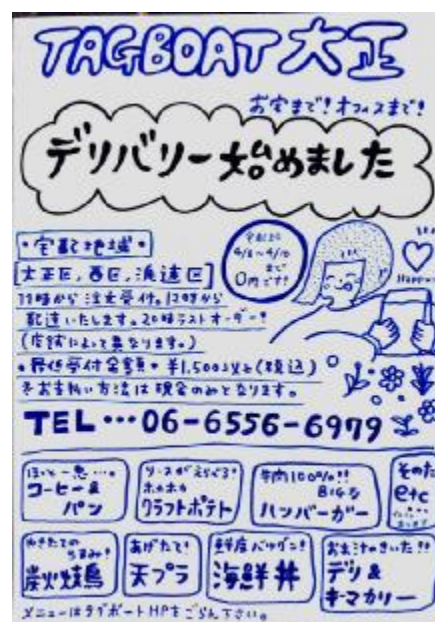 TAGBOAT大正
お宅まで!オフィスまで!
デリバリー始めました
・宅配地域・
[大正区,西区,浪速区]
11時から注文受付。12時から
配達いたします。20時ラストオーダー!
(店舗によって異なります。)
・最低受付金額・¥1,500以上(税込)
※お支払い方法は現金のみとなります。
4/6〜4/10
まで
0円です!
TEL…06-6556-6979
ほっと一息…。
コーヒー&
パン
ソースがえらべる!
ホカホカ
クラフトポテト
牛肉100%!!
BIGな
ハンバーガー
そのた
etc
やきたての
うまみ!
炭火焼鳥
あげたて!
天プラ
鮮度バツグン!
海鮮丼
お出汁のきいた!!
デリ&
キーマカリー
メニューはタグボートHPをごらん下さい。